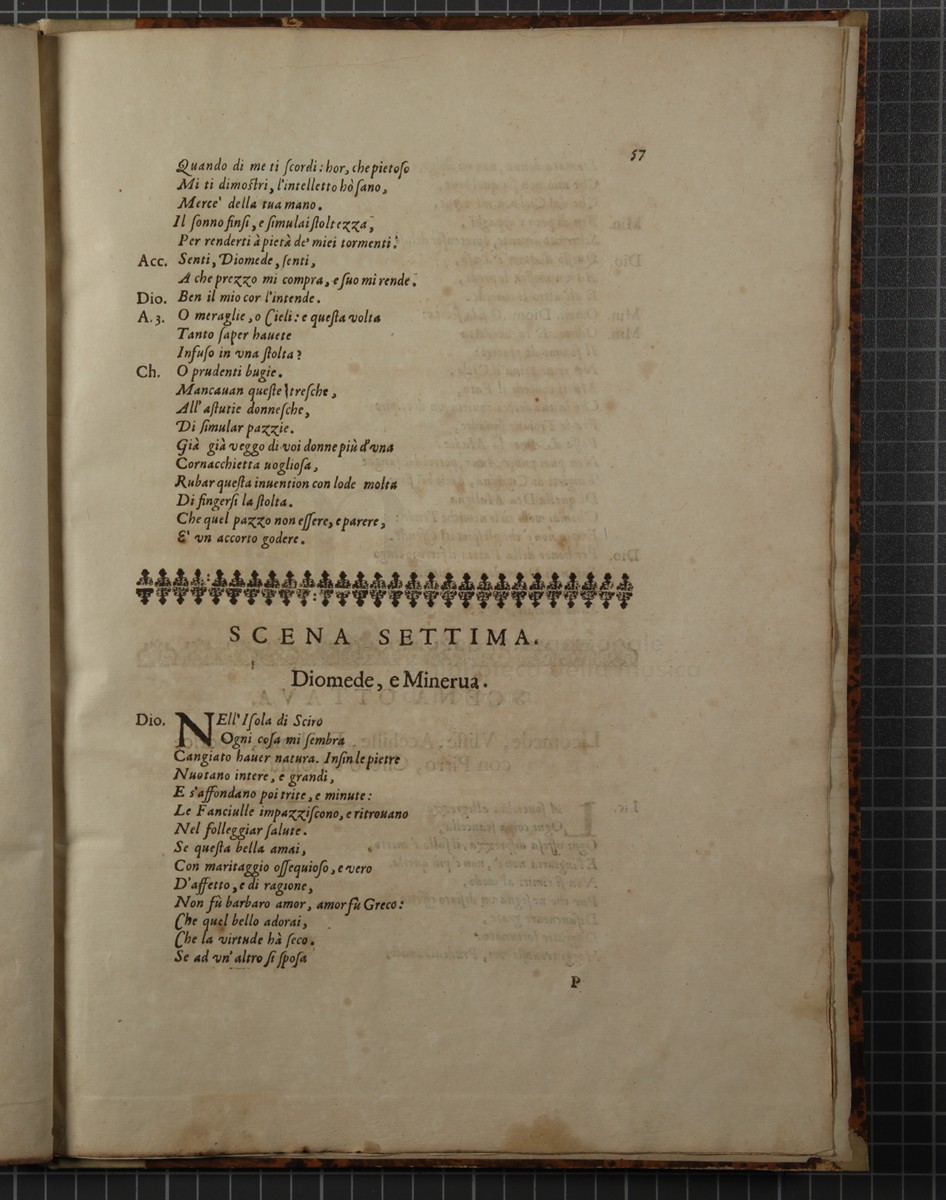 57
Quando di me ti ſcordi: hor, che pietoſo
Mi ti dimoſtri, l'intelletto hò ſano,
Merce' della tua mano.
Il ſonno finſi, e ſimulai ſtoltezza,
Per renderti à pietà de' miei tormenti.
Acc. Senti, Diomede, ſenti,
A che prezzo mi compra, e ſuo mi rende.
Dio. Ben il mio cor l'intende.
A. 3. O meraglie, o Cieli: e queſta volta
Tanto ſaper hauete
Infuſo in vna ſtolta?
Ch. O prudenti bugie.
Mancauan queſte treſche,
All' aſtutie donneſche,
Di ſimular pazzie.
Già già veggo di voi donne più d'vna
Cornacchietta uoglioſa,
Rubar queſta inuention con lode molta
Di fingerſi la ſtolta.
Che quel pazzo non eſſere, e parere,
E' vn accorto godere.
SCENA SETTIMA.
Diomede, e Minerua.
Dio. NEll' Iſola di Sciro
Ogni coſa mi ſembra
Cangiato hauer natura. Inſin le pietre
Nuotano intere, e grandi,
E s'affondano poi trite, e minute:
Le Fanciulle impazziſcono, e ritrouano
Nel folleggiar ſalute.
Se queſta bella amai,
Con maritaggio oſſequioſo, e vero
D'affetto, e di ragione,
Non fù barbaro amor, amor fù Greco:
Che quel bello adorai,
Che la virtude hà ſeco.
Se ad vn' altro ſi ſpoſa
P